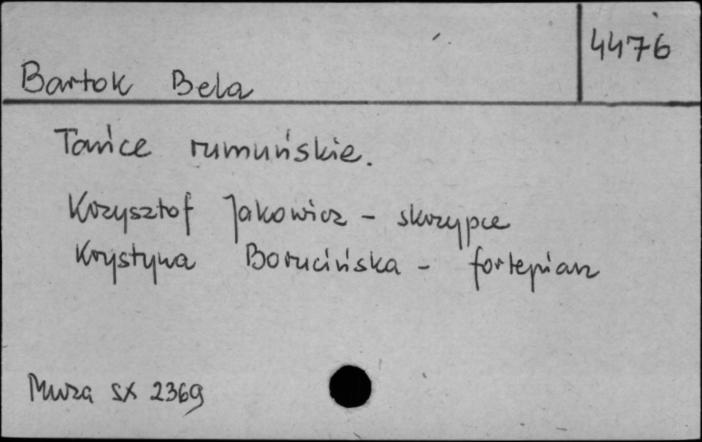 4476
Bartok Bela
Tańce rumuńskie.
Krzysztof Jakowicz - skrzypce
Krystyna Borucińska - fortepian
Muza sx 2369